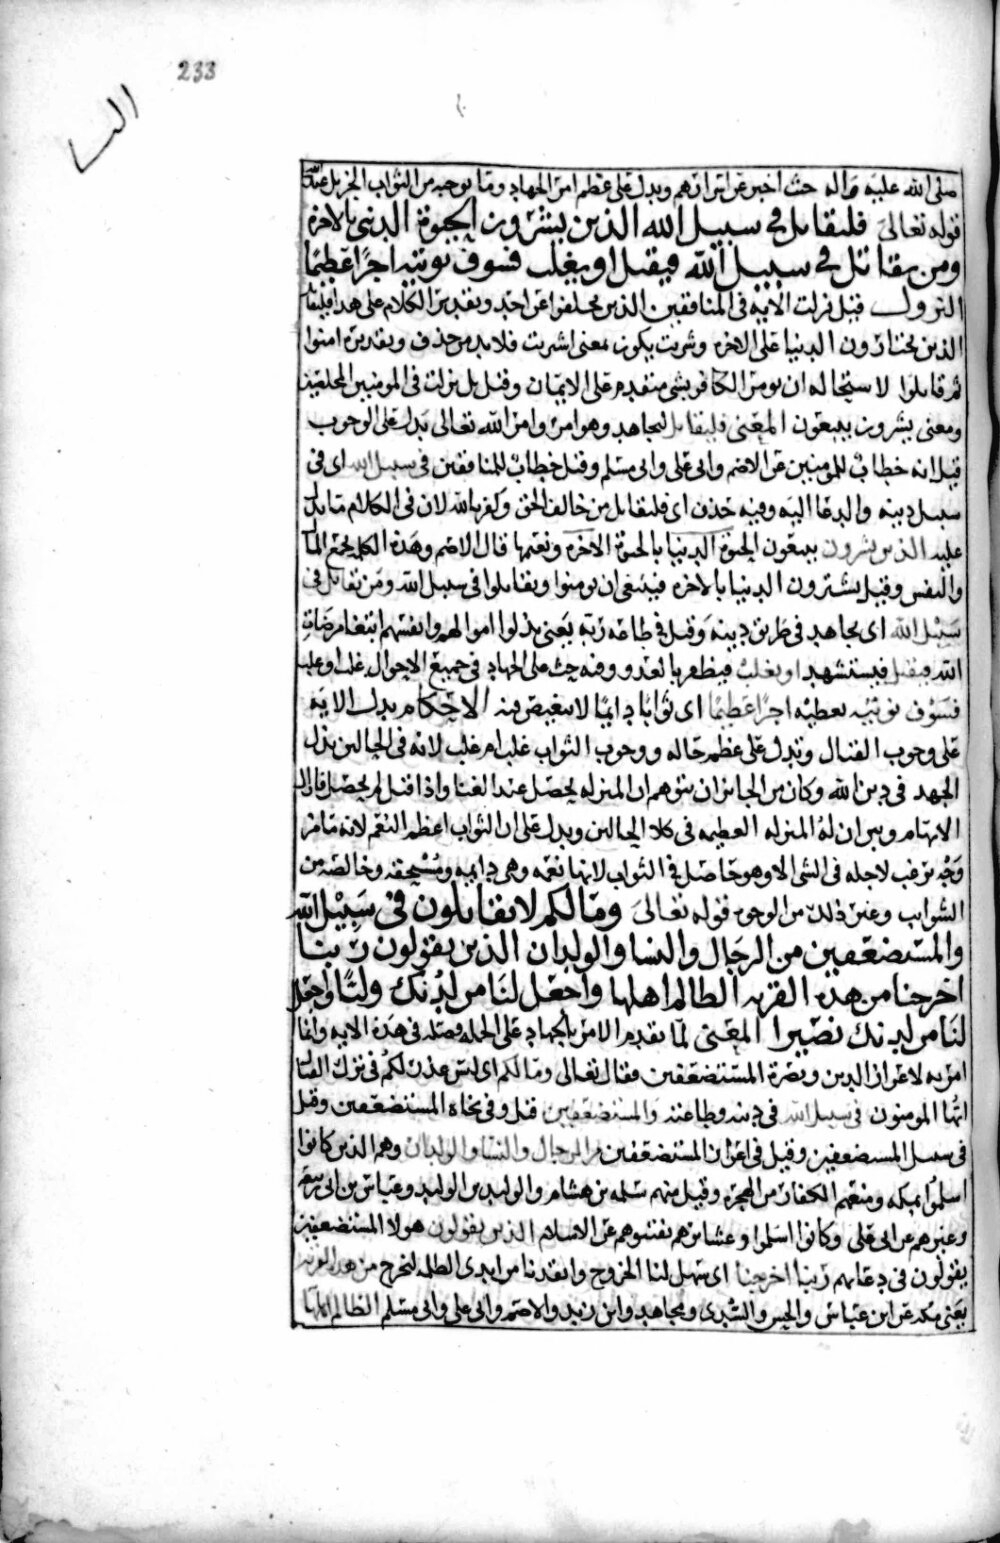 233
النسا
صلى الله عليه واله حيث اخبر عن اسرارهم ويدل على عظم امر الجهاد وما يوجبه من الثواب الجزيل عند الله
قوله تعالى فليقاتل في سبيل الله الذين يشرون الحيوة الدنيا بالاخرة
ومن يقاتل في سبيل الله فيقتل او يغلب فسوف نوتيه اجرا عظيما
النزول قيل نزلت الاية في المنافقين الذين تخلفوا عن احد وتقدير الكلام على هذا فليقاتل
الذين يختارون الدنيا على الاخرة وشريت يكون بمعنى اشتريت فلا بد من حذف وتقديره امنوا
ثم قاتلوا لاستحاله ان يومر الكافر بشي متقدم على الايمان وقيل بل نزلت في المومنين المخلصين
ومعنى يشرون يبيعون المعنى فليقاتل ليجاهد وهو امر وامر الله تعالى يدل على الوجوب
قيل انه خطاب للمومنين عن الاصم وابي علي وابي مسلم وقيل خطاب للمنافقين في سبيل الله اي في
سبيل دينه والدعا اليه وفيه حذف اي فليقاتل من خالف الحق وكفر بالله لان في الكلام ما يدل
عليه الذين يشرون يبيعون الحيوة الدنيا بالحيوة الاخرة ونعيمها قال الاصم وهذه الكلمة تجمع المال
والنفس وقيل يشترون الدنيا بالاخرة فينبغي ان يومنوا ويقاتلوا في سبيل الله ومن يقاتل في
سبيل الله اي يجاهد في طريق دينه وقيل في طاعة ربه يعني بذلوا اموالهم وانفسهم ابتغا مرضات
الله فيقتل فيستشهد او يغلب فيظفر بالعدو وفيه حث على الجهاد في جميع الاحوال غلب او غلب
فسوف نوتيه نعطيه اجرا عظيما اي ثوابا دايما لا تنغيص فيه الاحكام يدل الاية
على وجوب القتال وتدل على عظم حاله ووجوب الثواب غلب ام غلب لانه في الحالين بذل
الجهد في دين الله وكان من الجايز ان يتوهم ان المنزله يحصل عند الغنا واذا قتل لم يحصل فازال
الابهام وبين ان له المنزله العظيمه في كلا الحالين ويدل على ان الثواب اعظم النعم لانه ما من
وجه يرغب لاجله في الشي الا وهو حاصل في الثواب لانها نعمه وهي دايمه ومستحقه وخالصه من
الشوايب وغير ذلك من الوجوه قوله تعالى وما لكم لا تقاتلون في سبيل الله
والمستضعفين من الرجال والنسا والولدان الذين يقولون ربنا
اخرجنا من هذه القرية الظالم اهلها واجعل لنا من لدنك وليا واجعل
لنا من لدنك نصيرا المعنى لما تقدم الامر بالجهاد على الجملة وصله في هذه الاية وانما
امر به لاعزاز الدين ونصرة المستضعفين فقال تعالى وما لكم اي ايش عذر لكم في ترك القتال
ايها المومنون في سبيل الله في دينه وطاعته والمستضعفين قيل وفي نجاة المستضعفين وقيل
في سبيل المستضعفين وقيل في اعزاز المستضعفين من الرجال والنسا والولدان وهم الذين كانوا
اسلموا بمكه ومنعهم الكفار من الهجرة وقيل منهم سلمه بن هشام والوليد بن الوليد وعياش بن ابي ربيعه
وغيرهم عن ابي علي وكانوا اسلموا وعشايرهم يفتنوهم عن الاسلام الذين يقولون هولا المستضعفين
يقولون في دعايهم ربنا اخرجنا اي سهل لنا الخروج وانقذنا من ايدي الظلمه لنخرج من هذه القريه
يعني مكه عن ابن عباس والحسن والسدي ومجاهد وابن زيد والاصم وابي علي وابي مسلم الظالم اهلها